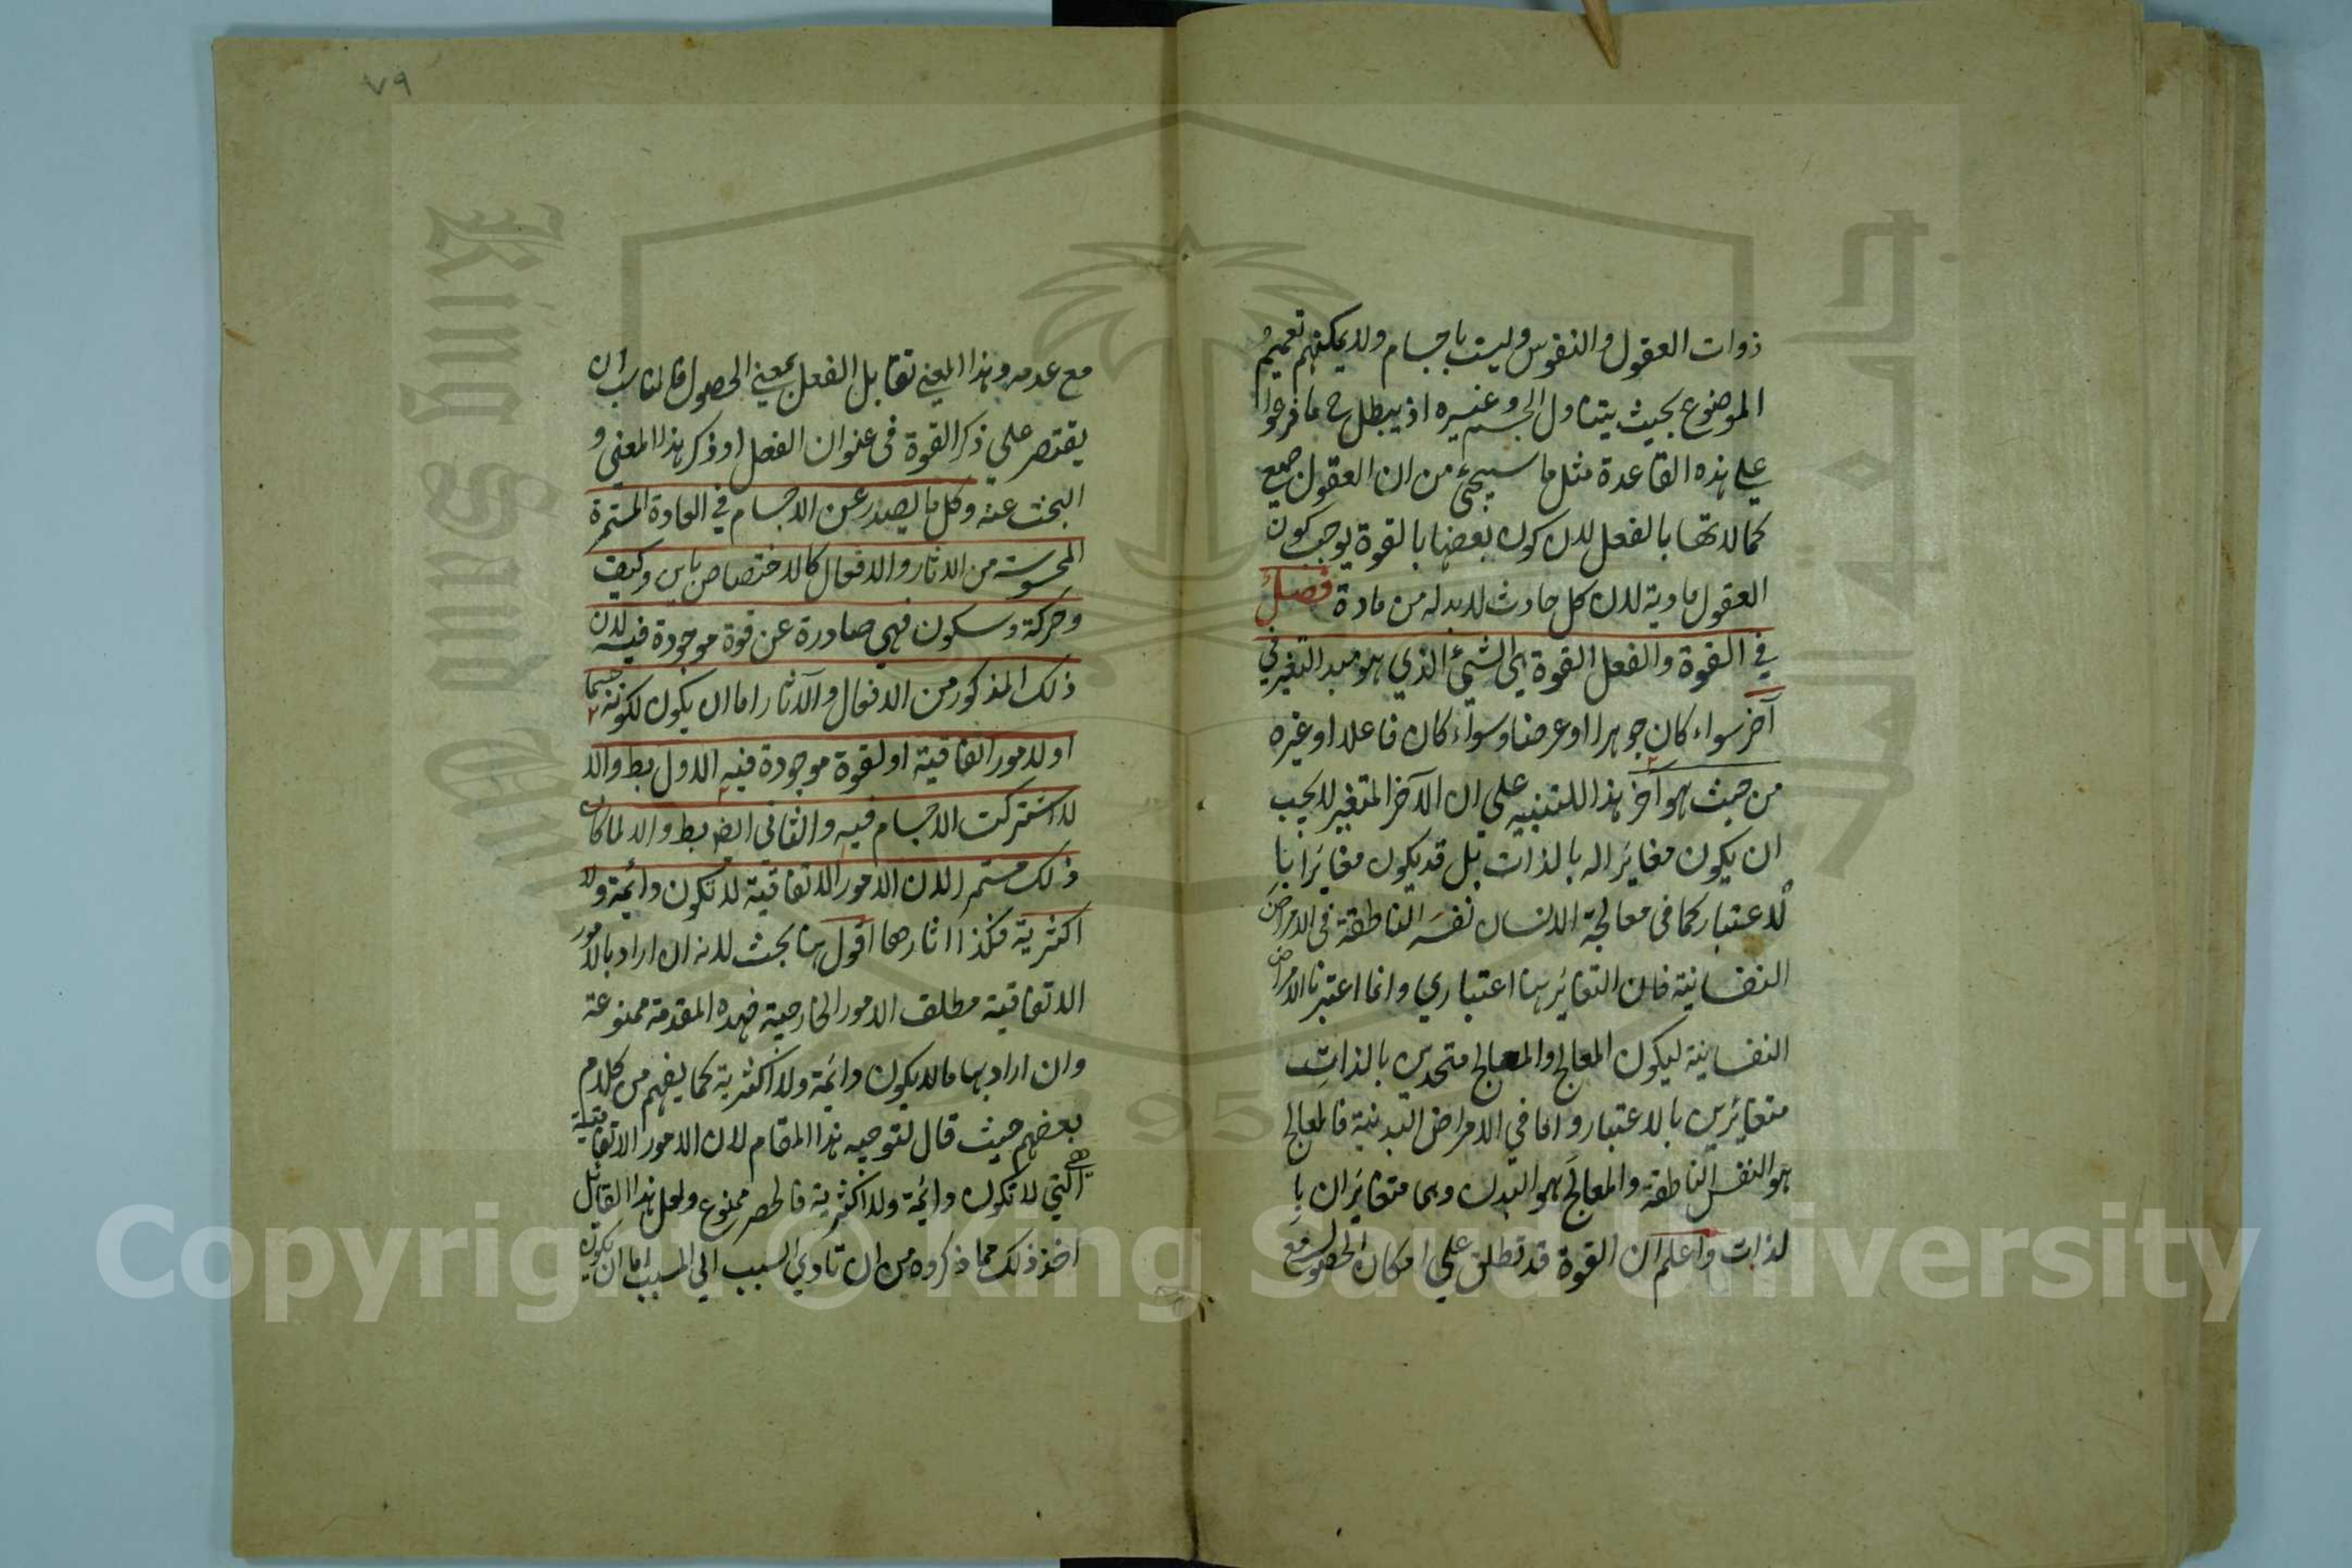 ذوات العقول والنفوس وليست باجسام ولا يمكنهم تعميم
الموضوع بحيث يتناول الجسم وغيره اذ يبطل ح ما فرعوا
علي هذه القاعدة مثل ما سيجئ من ان العقول جميع
كمالاتها بالفعل لان كون بعضها بالقوة يوجب كون
العقول مادية لان كل حادث لا بد له من مادة فصل
في القوة والفعل القوة هي الشئ الذي هو مبدا التغير في
آخر سواء كان جوهرا او عرضا وسواء كان فاعلا او غيره
من حيث هو آخر هذا للتنبيه علي ان الآخر المتغير لا يجب
ان يكون مغايرا له بالذات بل قد يكون مغايرا با
لاعتبار كما في معالجة الانسان نفسه الناطقة في الامراض
النفسانية فان التغاير هنا اعتباري وانما اعتبرنا الامراض
النفسانية ليكون المعالج والمعالج متحدين بالذات
متغايرين بالاعتبار واما في الامراض البدنية فالمعالج
هو النفس الناطقة والمعالج هو البدن وهما متغايران با
لذات واعلم ان القوة قد تطلق علي امكان الحصول مع
٧٩
مع عدمه وهذا المعني تقابل الفعل بمعني الحصول فالمناسب ان
يقتصر علي ذكر القوة في عنوان الفصل او ذكر هذا المعني و
البحث عنه وكل ما يصدر عن الاجسام في العادة المستمرة
المحسوسة من الاثار والافعال كالاختصاص باين وكيف
وحركة وسكون فهي صادرة عن قوة موجودة فيه لان
ذلك المذكور من الافعال والآثار اما ان يكون لكونه جسما
او لامور اتفاقية او لقوة موجودة فيه الاول بط والا
لاشتركت الاجسام فيه والثاني ايضا بط والا لما كان
ذلك مستمرا لان الامور الاتفاقية لا تكون دائمة ولا
اكثرية فكذا اثارها اقول هنا بحث لانه ان اراد بالامور
الاتفاقية مطلق الامور الخارجية فهذه المقدمة ممنوعة
وان اراد بها ما لا يكون دائمة ولا اكثرية كما يفهم من كلام
بعضهم حيث قال لتوجيه هذا المقام لان الامور الاتفاقية
هي التي لا تكون دائمة ولا اكثرية فالحصر ممنوع ولعل هذا القائل
اخذ ذلك مما ذكروه من ان تادي السبب الي المسبب اما ان يكون
Copyright © King Saud University